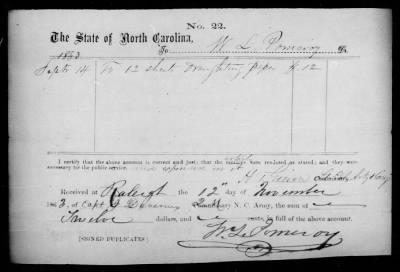 No. 22.
The State of North Carolina,
To W. L. Pomeroy Dr.
1863
Septr 14 To 12 sheets Draughting paper $12
I certify that the above account is correct and just; that the articles were rendered as stated; and they were
necessary for the public service
Received at Raleigh the 12th day of November
1863, of Capt J Devereux N. C. Army, the sum of
Twelve dollars, and cents, in full of the above account.
[SIGNED DUPLICATES.] W. L. Pomeroy